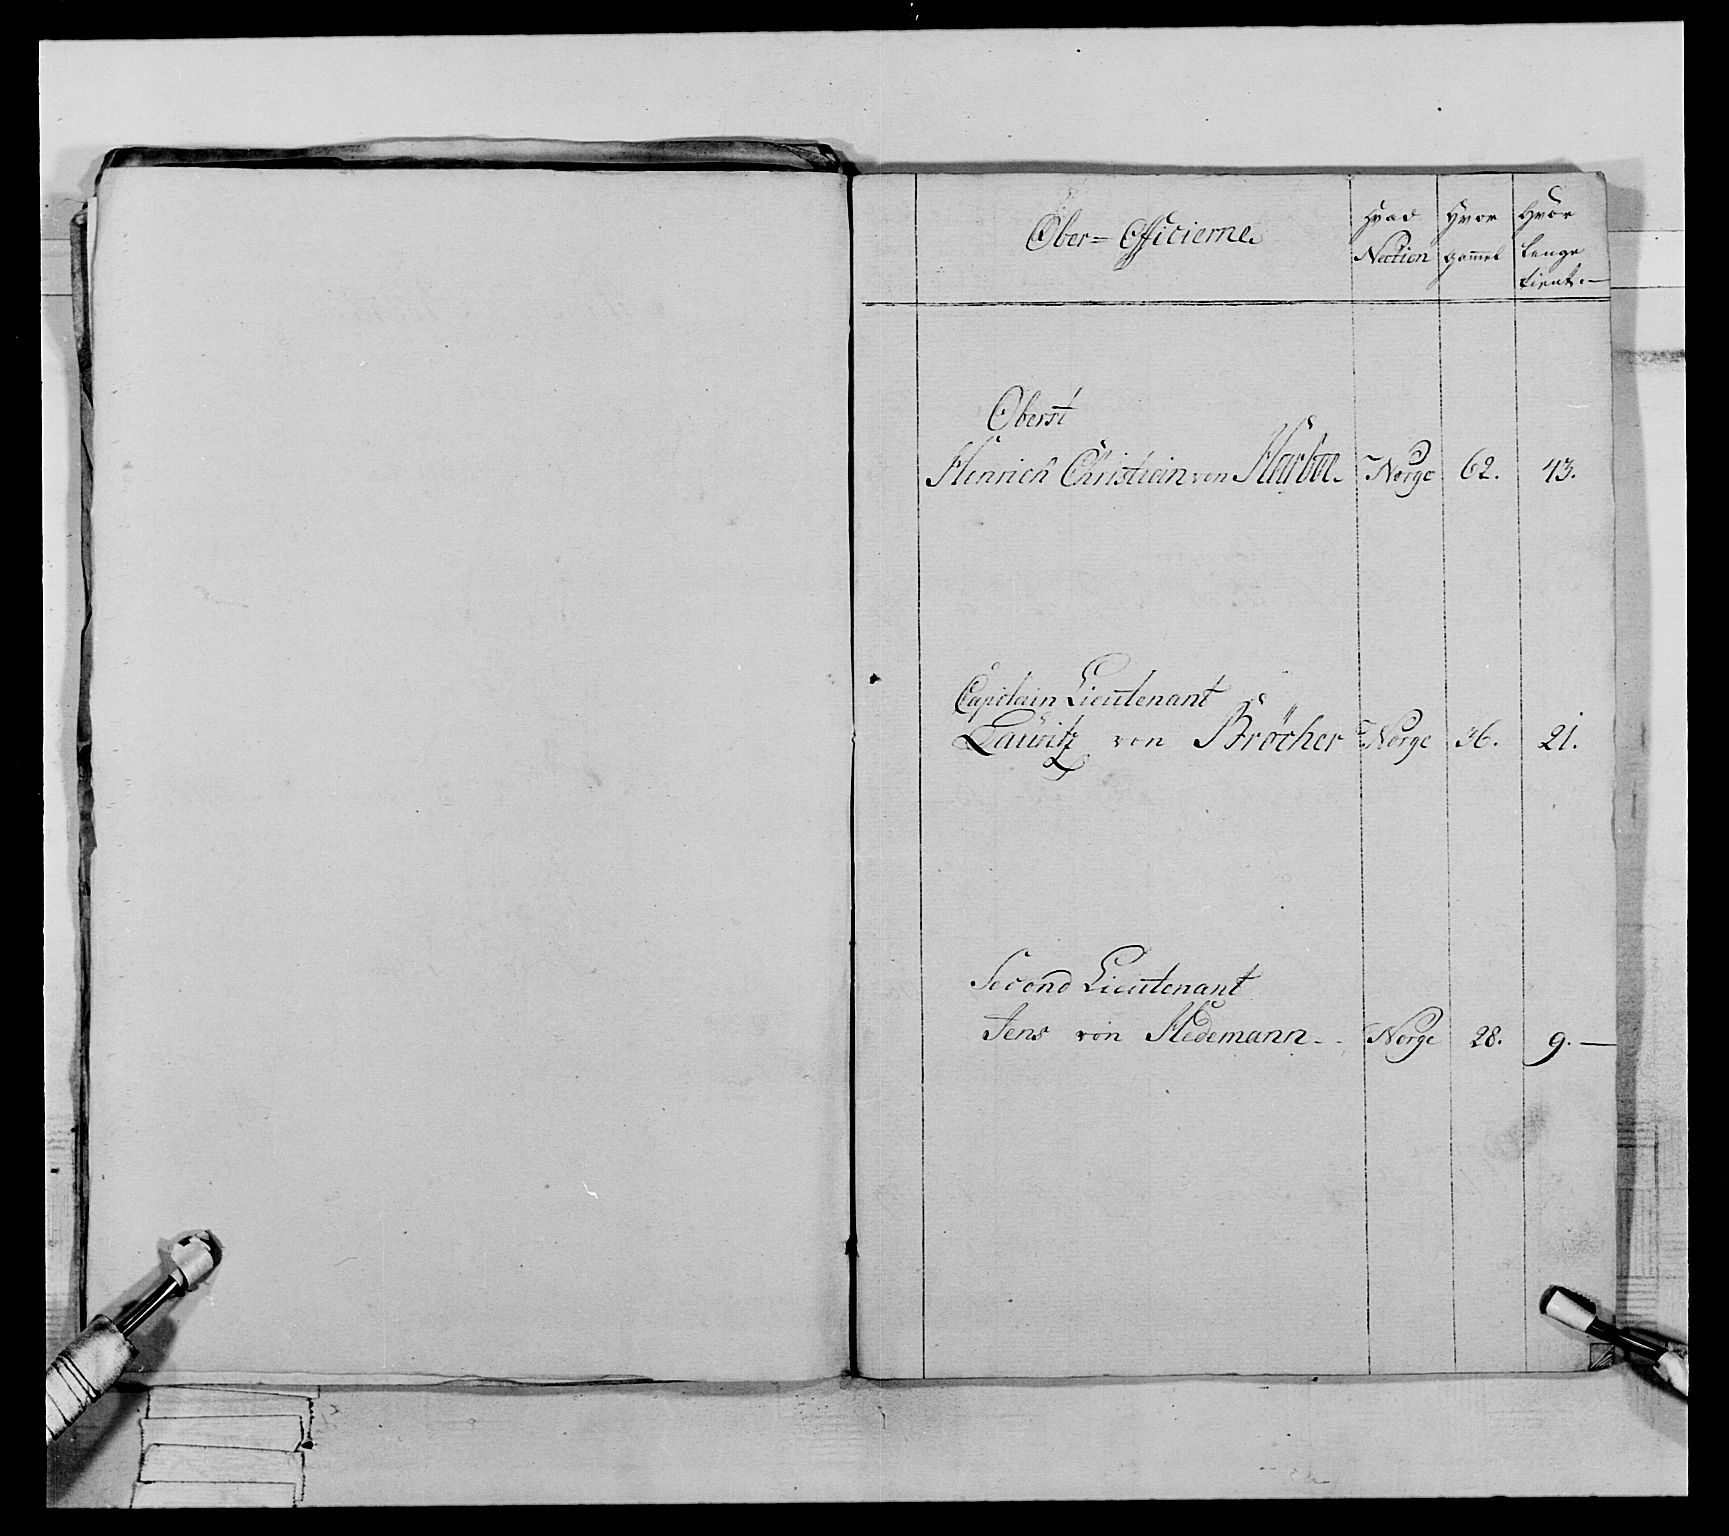 Ober=Officierne.
Hvad Nation
Hvor gammel
Hvor lenge tient.
Oberst
Henrich Christian von Harboe. Norge 62. 43.
Capitain Lieutenant
Lauritz von Bröcher Norge 36. 21.
Second Lieutenant
Jens von Hedemann Norge 28. 9.